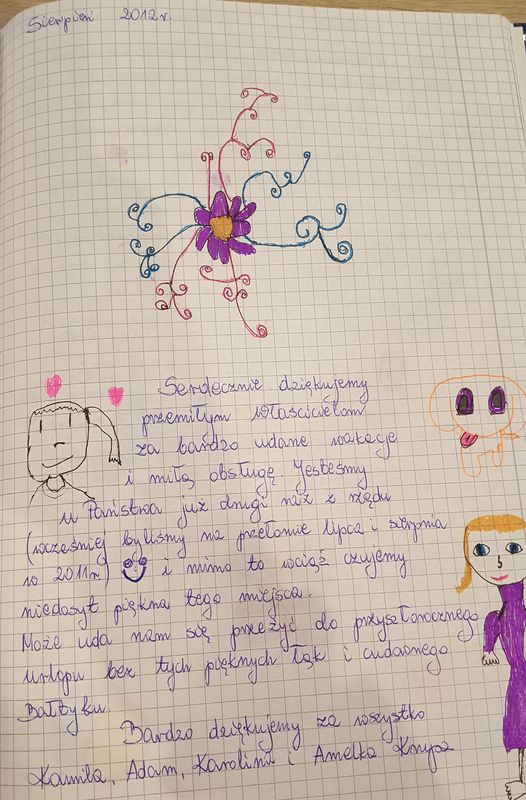 Sierpień 2012r.
Serdecznie dziękujemy
przemiłym właścicielom
za bardzo udane wakacje
i miłą obsługę. Jesteśmy
u Państwa już drugi raz z rzędu
(wcześniej byliśmy na przełomie lipca i sierpnia
w 2011r.) i mimo to wciąż czujemy
niedosyt piękna tego miejsca.
Może uda nam się przeżyć do przyszłorocznego
urlopu bez tych pięknych łąk i cudownego
Bałtyku.
Bardzo dziękujemy za wszystko
Kamila, Adam, Karolina i Amelka